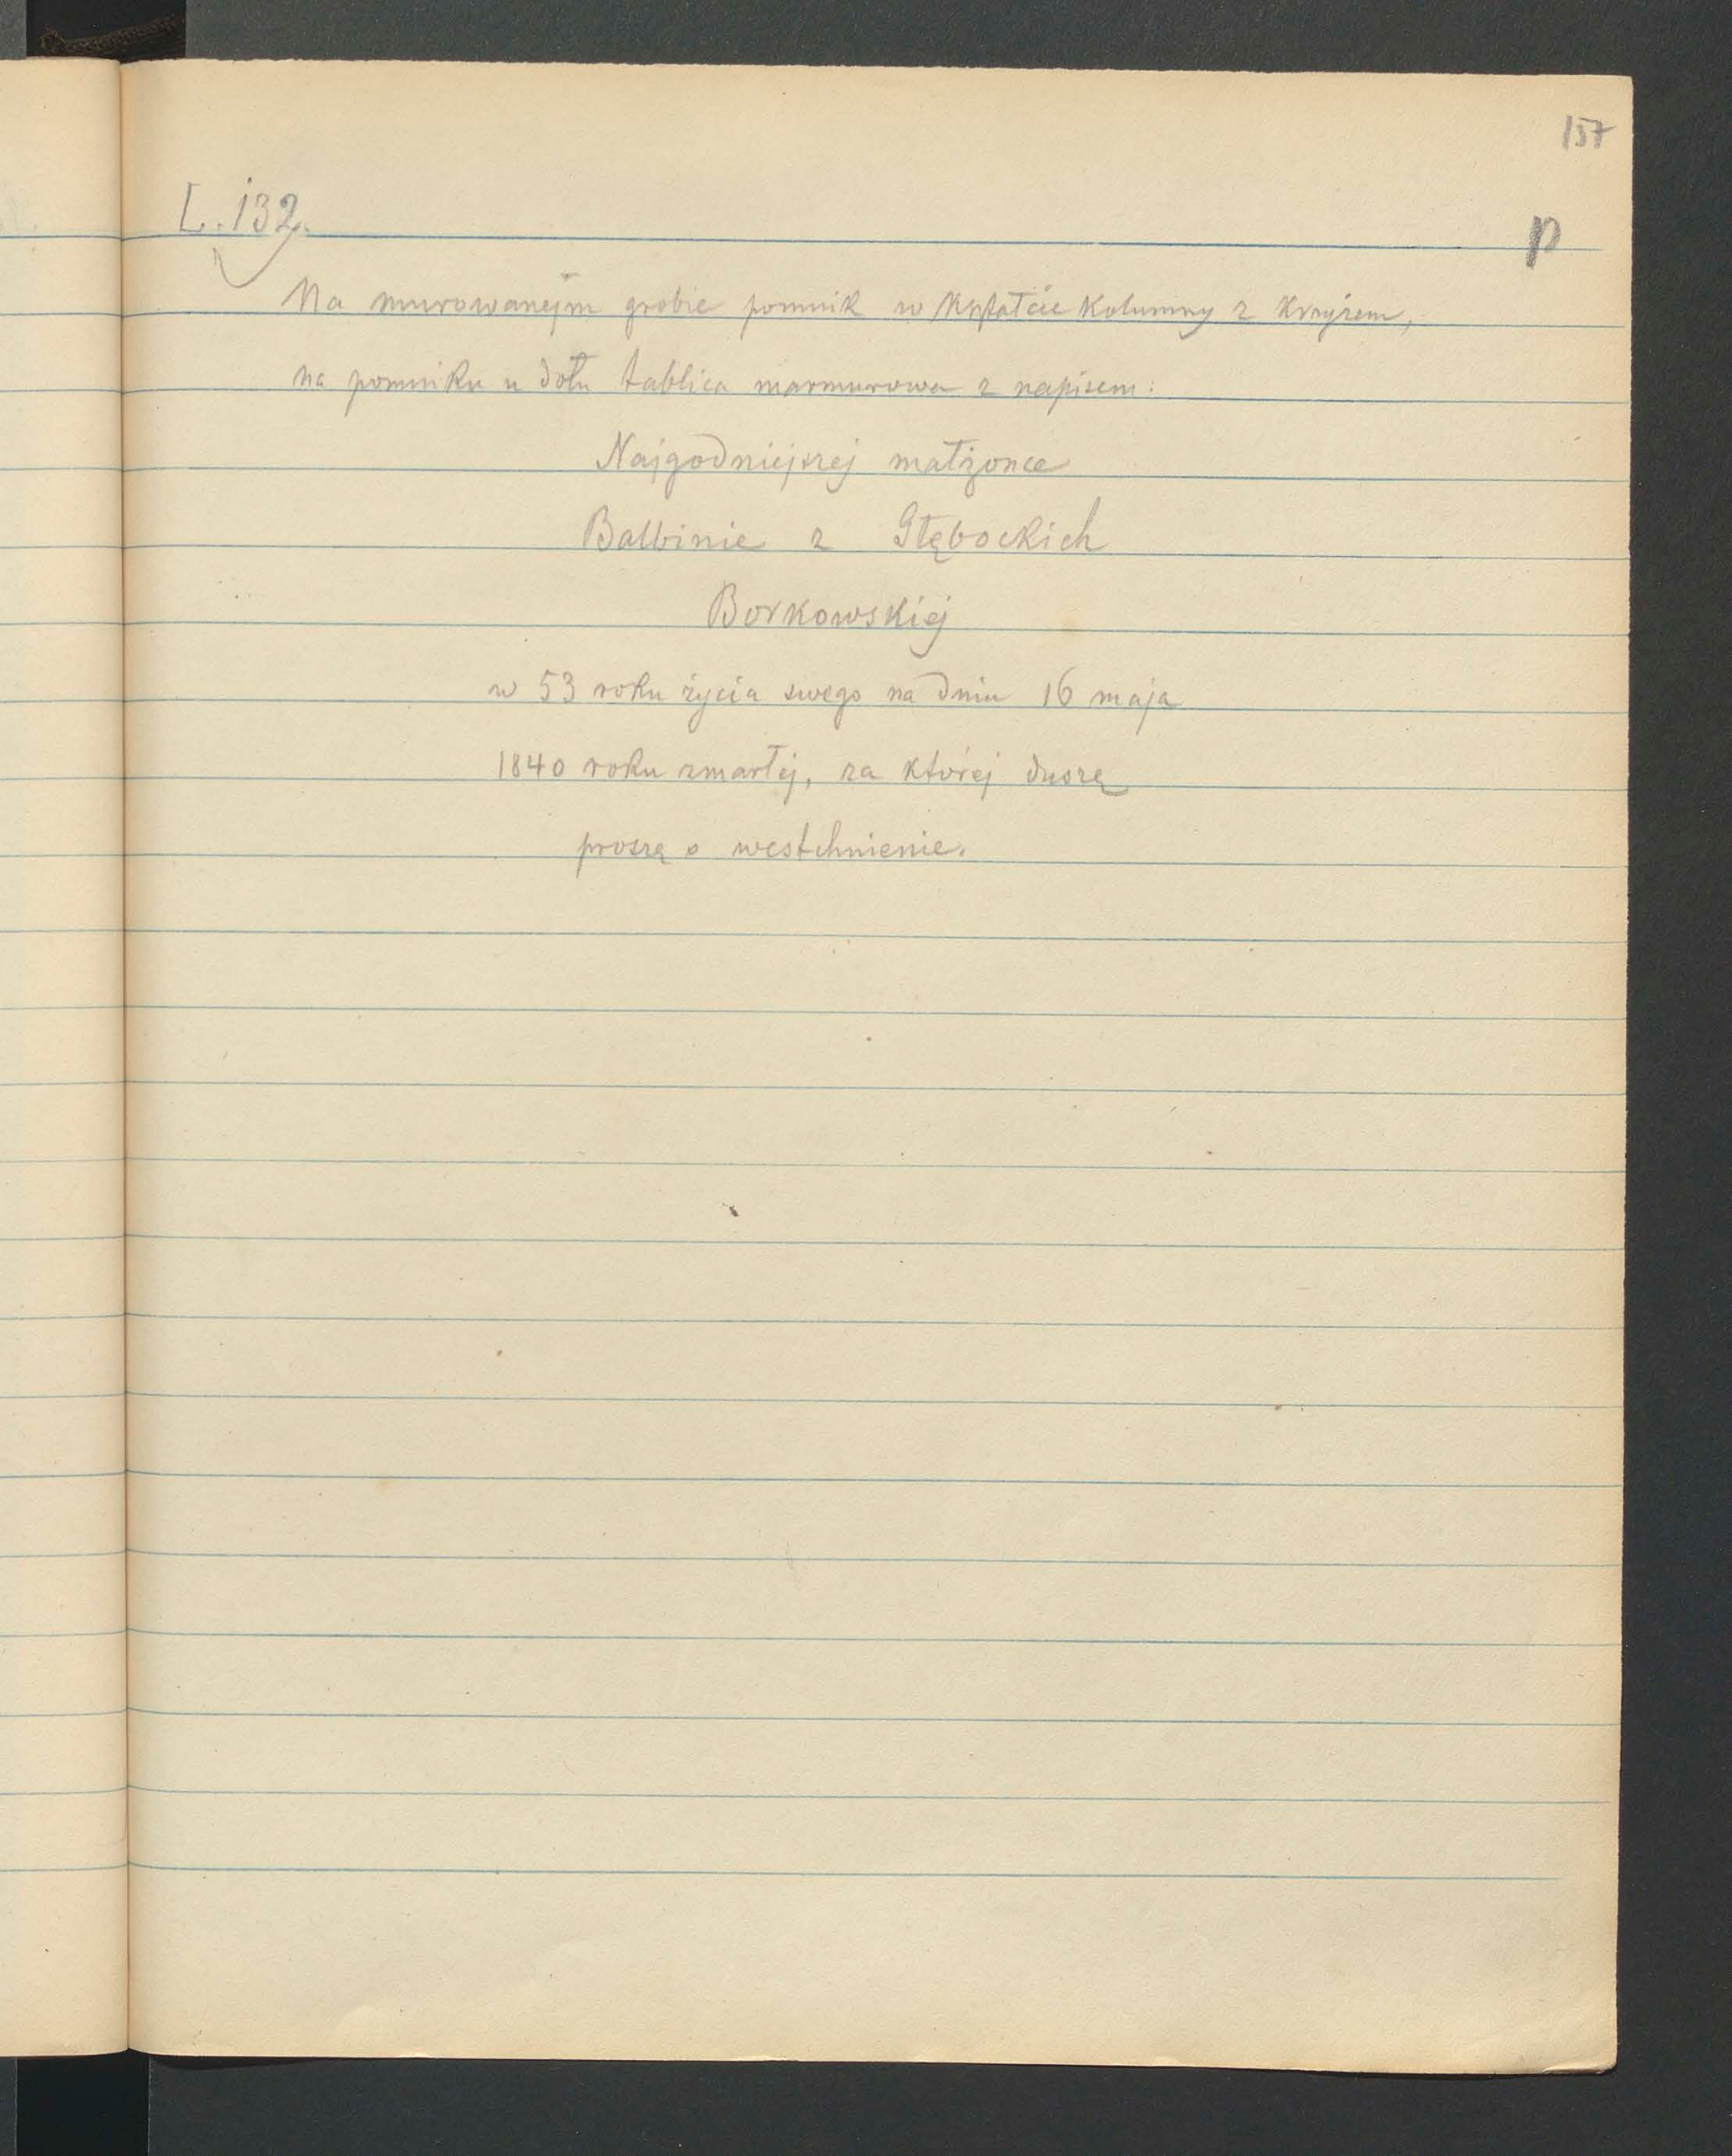 157
L. 132.
p
Na murowanejm grobie pomnik w kształcie kolumny z krzyżem,
na pomniku u dołu tablica marmurowa z napisem:
Najgodniejszej małżonce
Balbinie z Głębockich
Borkowskiej
w 53 roku życia swego na dniu 16 maja
1840 roku zmarłej, za której duszę
proszą o westchnienie.